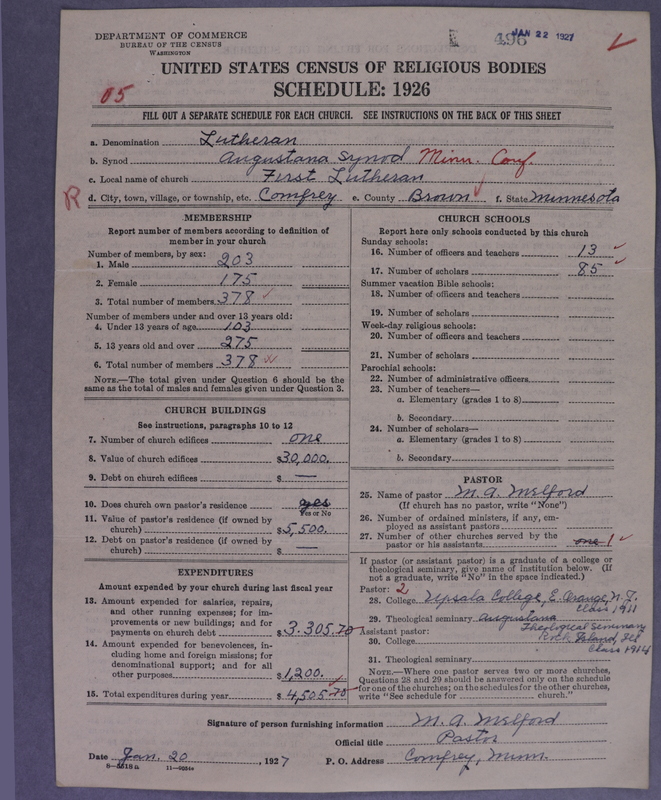 DEPARTMENT OF COMMERCE
BUREAU OF THE CENSUS
WASHINGTON
496 JAN 22 1927
UNITED STATES CENSUS OF RELIGIOUS BODIES
SCHEDULE: 1926
05
FILL OUT A SEPARATE SCHEDULE FOR EACH CHURCH. SEE INSTRUCTIONS ON THE BACK OF THIS SHEET
a. Denomination Lutheran
b. Synod Augustana Synod Minn. Conf.
c. Local name of church First Lutheran
R d. City, town, village, or township, etc. Comfrey e. County Brown f. State Minnesota
MEMBERSHIP
Report number of members according to definition of
member in your church
Number of members, by sex:
1. Male 203
2. Female 175
3. Total number of members 378
Number of members under and over 13 years old:
4. Under 13 years of age 103
5. 13 years old and over 275
6. Total number of members 378
NOTE.—The total given under Question 6 should be
same as the total of males and females given under Question 3.
CHURCH BUILDINGS
See instructions, paragraphs 10 to 12
7. Number of church edifices one
8. Value of church edifices $30,000.
9. Debt on church edifices $ —
10. Does church own pastor's residence yes
Yes or No
11. Value of pastor's residence (if owned by
church) $5,500.
12. Debt on pastor's residence (if owned by
church) $ —
EXPENDITURES
Amount expended by your church during last fiscal year
13. Amount expended for salaries, repairs,
and other running expenses; for im-
provements or new buildings; and for
payments on church debt $3.305.70
14. Amount expended for benevolences, in-
cluding home and foreign missions; for
denominational support; and for all
other purposes $1,200.
15. Total expenditures during year $4,505.70
CHURCH SCHOOLS
Report here only schools conducted by this church
Sunday schools:
16. Number of officers and teachers 13
17. Number of scholars 85
Summer vacation Bible schools:
18. Number of officers and teachers
19. Number of scholars
Week-day religious schools:
20. Number of officers and teachers
21. Number of scholars
Parochial schools:
22. Number of administrative officers
23. Number of teachers—
a. Elementary (grades 1 to 8)
b. Secondary
24. Number of scholars—
a. Elementary (grades 1 to 8)
b. Secondary
PASTOR
25. Name of pastor M. A. Melford
(If church has no pastor, write "None")
26. Number of ordained ministers, if any, em-
ployed as assistant pastors
27. Number of other churches served by the
pastor or his assistants one 1
If pastor (or assistant pastor) is a graduate of a college or
theological seminary, give name of institution below. (If
not a graduate, write "No" in the space indicated.)
Pastor: 2
28. College Upsala College, E. Orange, N. J.
Class 1911
29. Theological seminary Augustana
Theological Seminary
Assistant pastor:
Rock Island, Ill
30. College
Class 1914
31. Theological seminary
NOTE.—Where one pastor serves two or more churches,
Questions 28 and 29 should be answered only on the schedule
for one of the churches; on the schedules for the other churches,
write "See schedule for church."
Signature of person furnishing information M. A. Melford
Official title Pastor
Date Jan. 20, 1927 P. O. Address Comfrey, Minn.